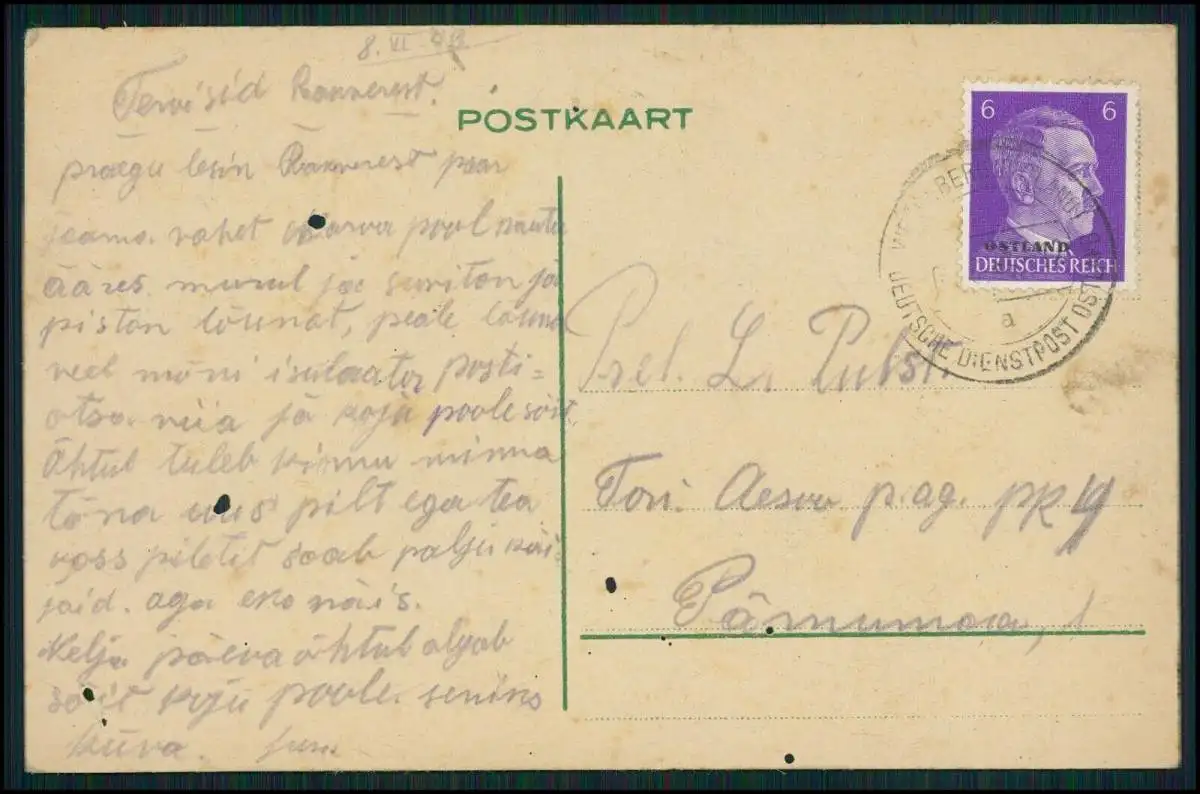 8. VI 43
Tervisid Rakverest.
praegu lesin Rakverest paar
jaama vahet Narva pool
ääres murul ja suvitan ja
pistan lõunat, peale lõuna
veel mõni isulaator posti=
otsa viia ja koju poole sõit.
Õhtul tuleb kinnu minna
täna uus pilt ega tea
kas piletit saab palju
jaid. aga eks näis.
Nelja päeva õhtul algab
sõit koju poole. seniks
POSTKAART
6 6
OSTLAND
DEUTSCHES REICH
DEUTSCHE DIENSTPOST OSTLAND
a
Prel. L. Pubst.
Tori Aesoo p.ag. pk 4
Pärnumaa,